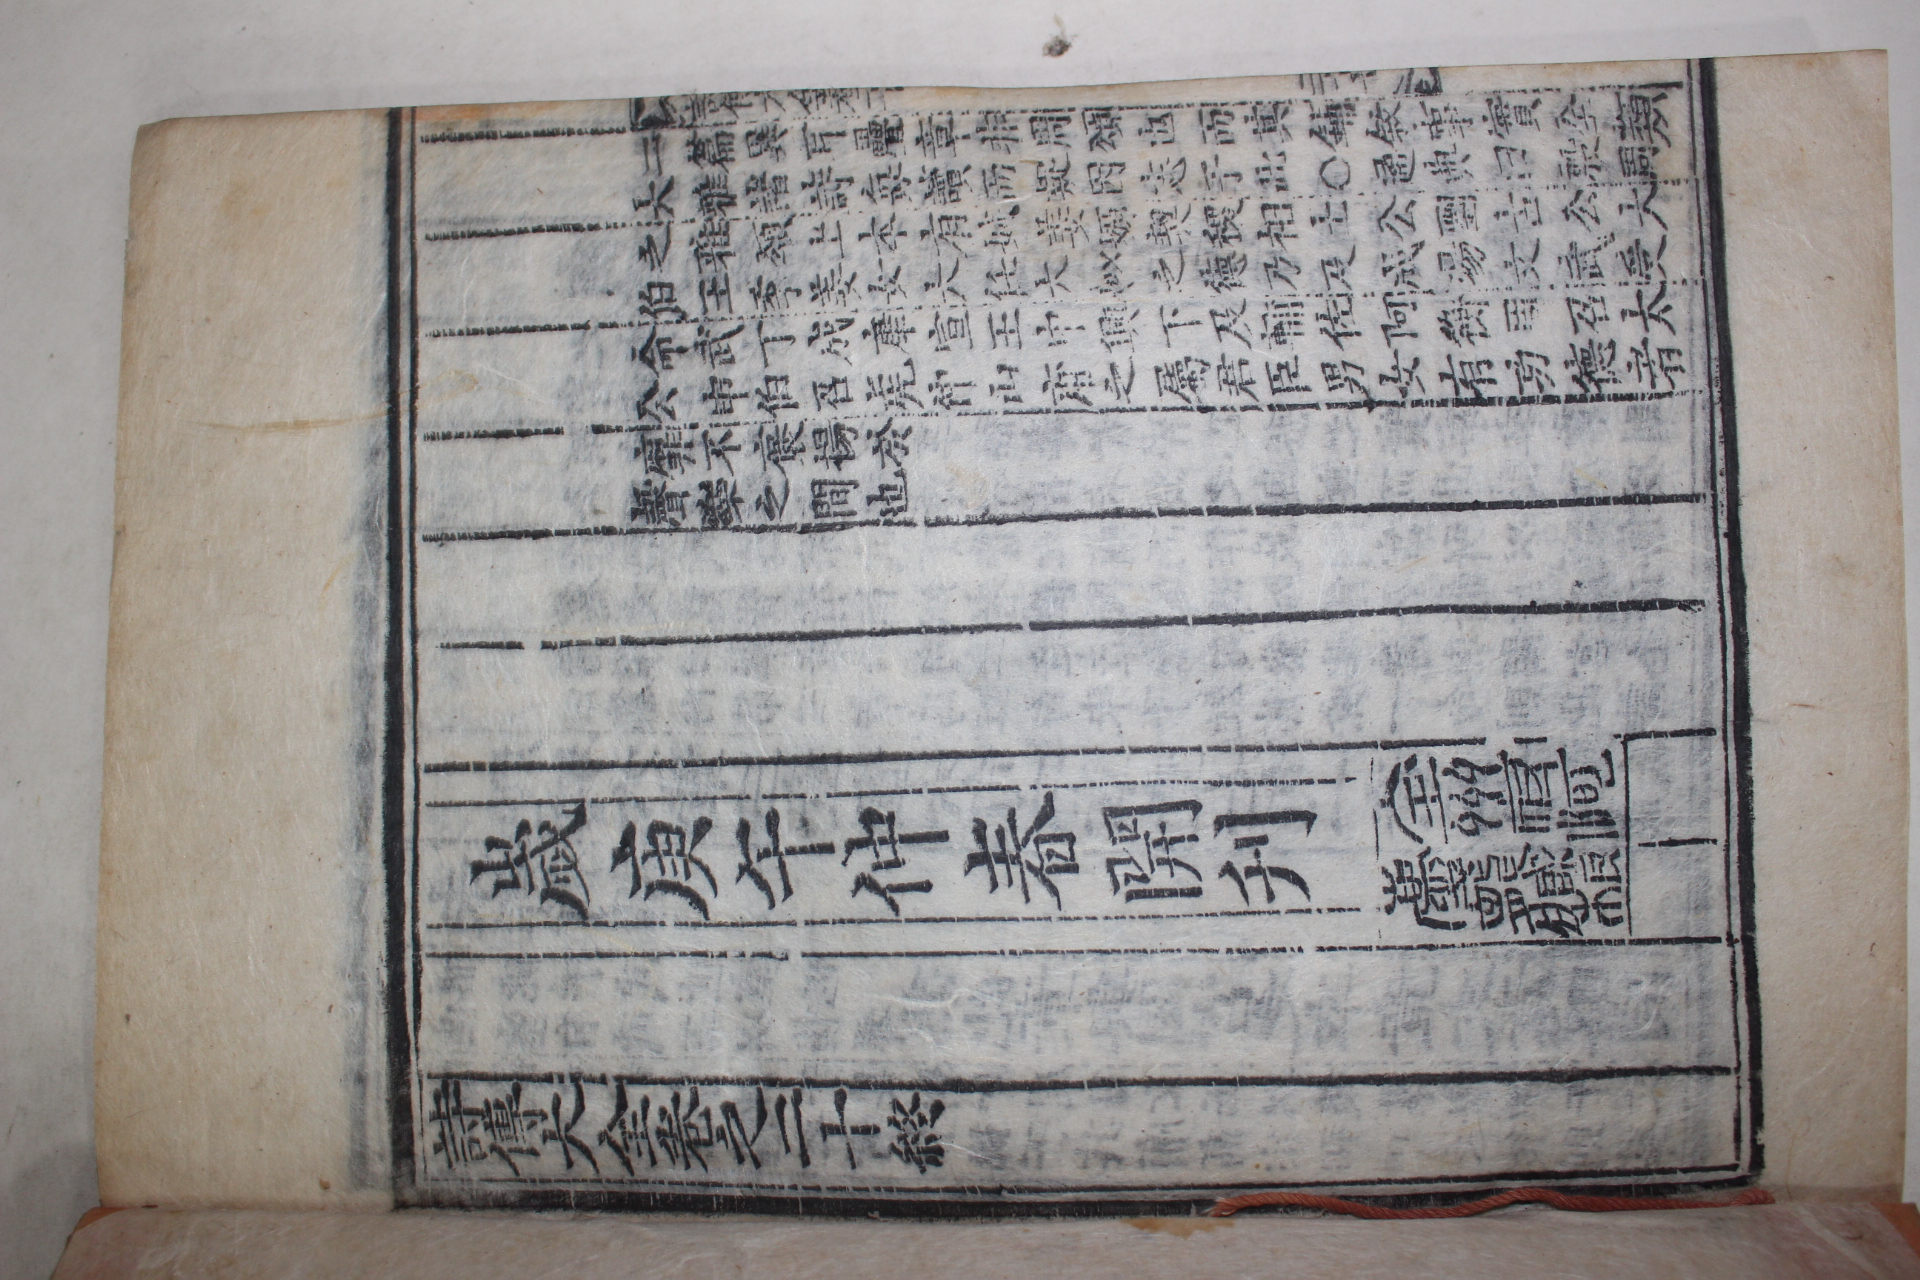 二篇異耳疊章非周頌也而其鋪敘事實全類
大雅諸詩每讀而疑因志于此○通典曰殷周
之雅頌上本有娀姜嫄契稷相土公劉古公大
伯王季姜女大任大姒之德乃及成湯文武受
命武丁成康宣王中興下及輔佐阿衡周召太
公申伯召虎仲山甫之屬君臣男女有功德者
靡不襃揚於
聲樂之間也
歲庚午仲春開刊
全州河
藏板
詩傳大全卷之二十終